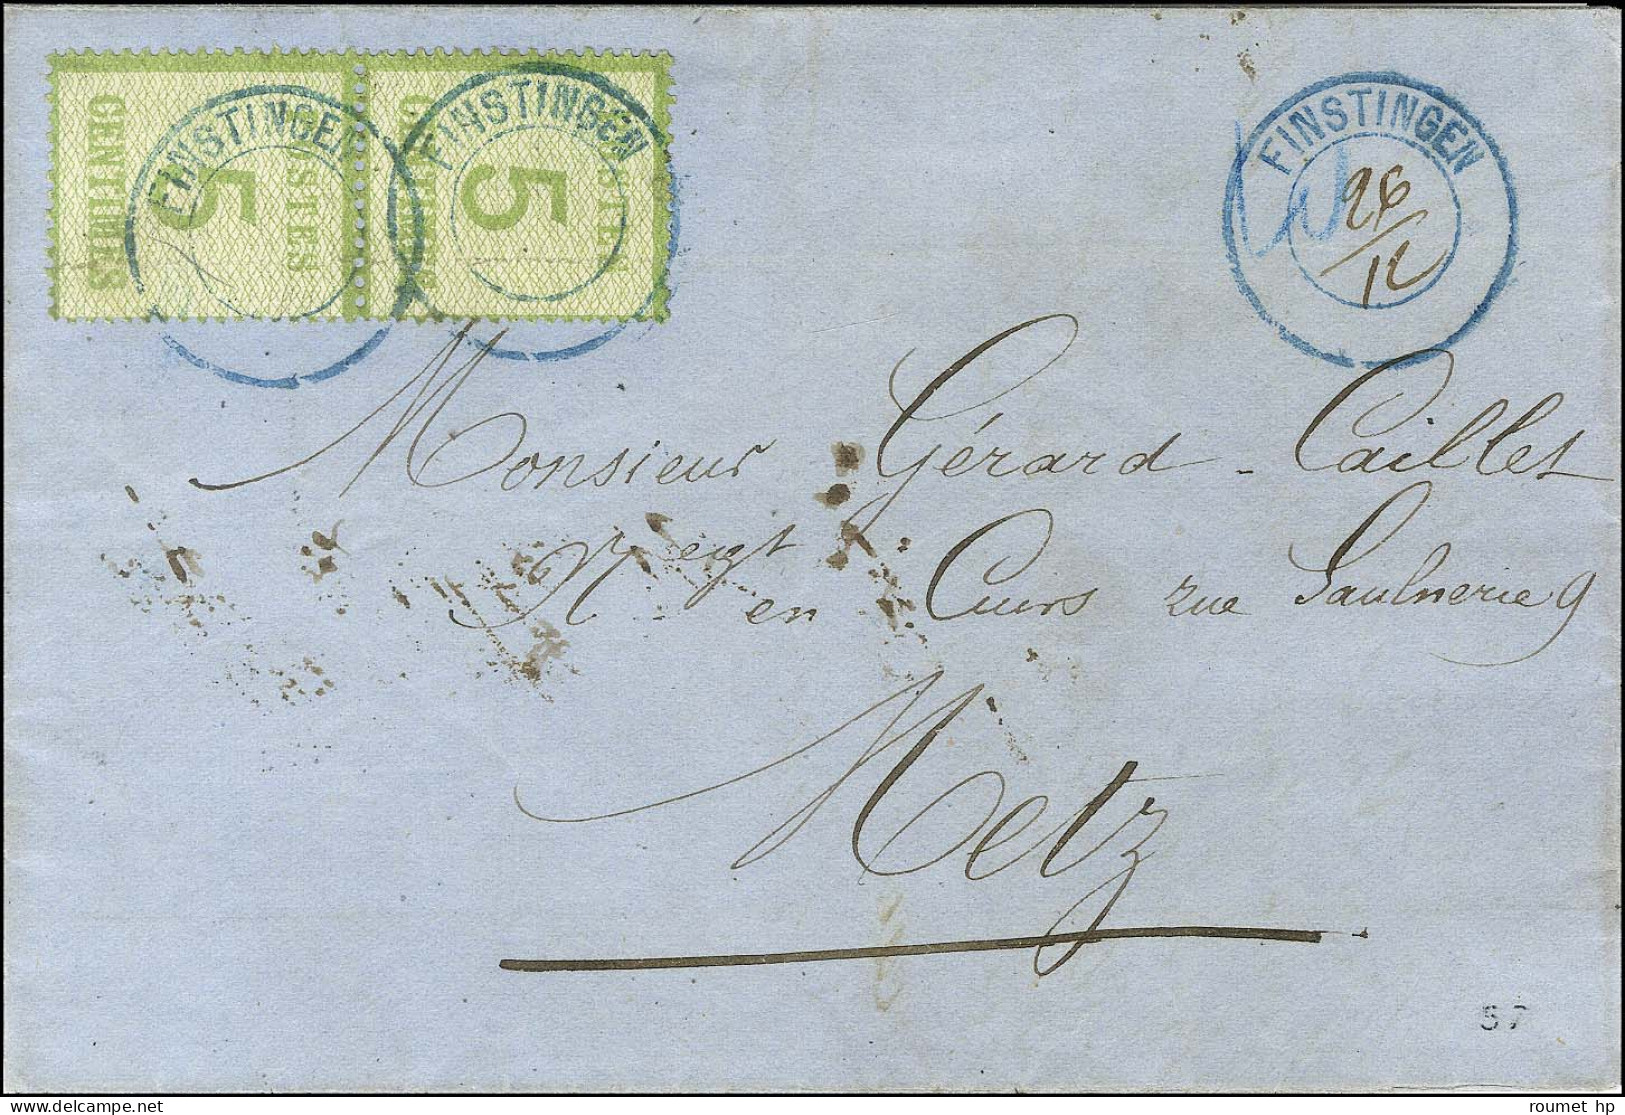 POSTES
5
CENTIMES
POSTES
5
CENTIMES
FINSTINGEN
FINSTINGEN
FINSTINGEN
26/12
Monsieur Gérard-Caillet
Negt en Cuirs rue Saulnerie 9
Metz
57
roumet hp